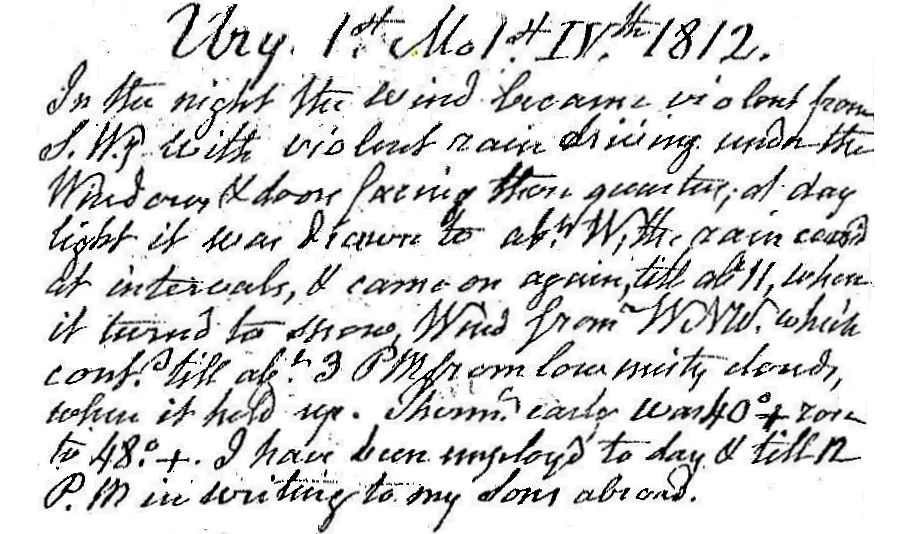 Ury. 1st Mo 1st IVth 1812.
In the night the wind became violent from
S. W. with violent rain driving under the
Windows & doors facing then quarter; at day
light it was drawn to abt W, the rain ceas'd
at intervals, & came on again, till abt 11, when
it turn'd to snow, Wind from WNW. which
cont.d till abt. 3 PM from low misty clouds,
when it held up. Therm. early was 40°+ rose
to 48°+. I have been employ'd to day & till 12
P.M in writing to my Sons abroad.